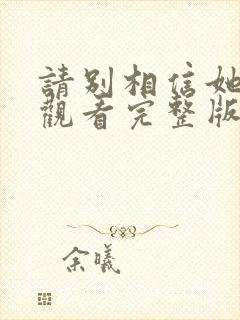 請別相信她
觀看完整版
余曦